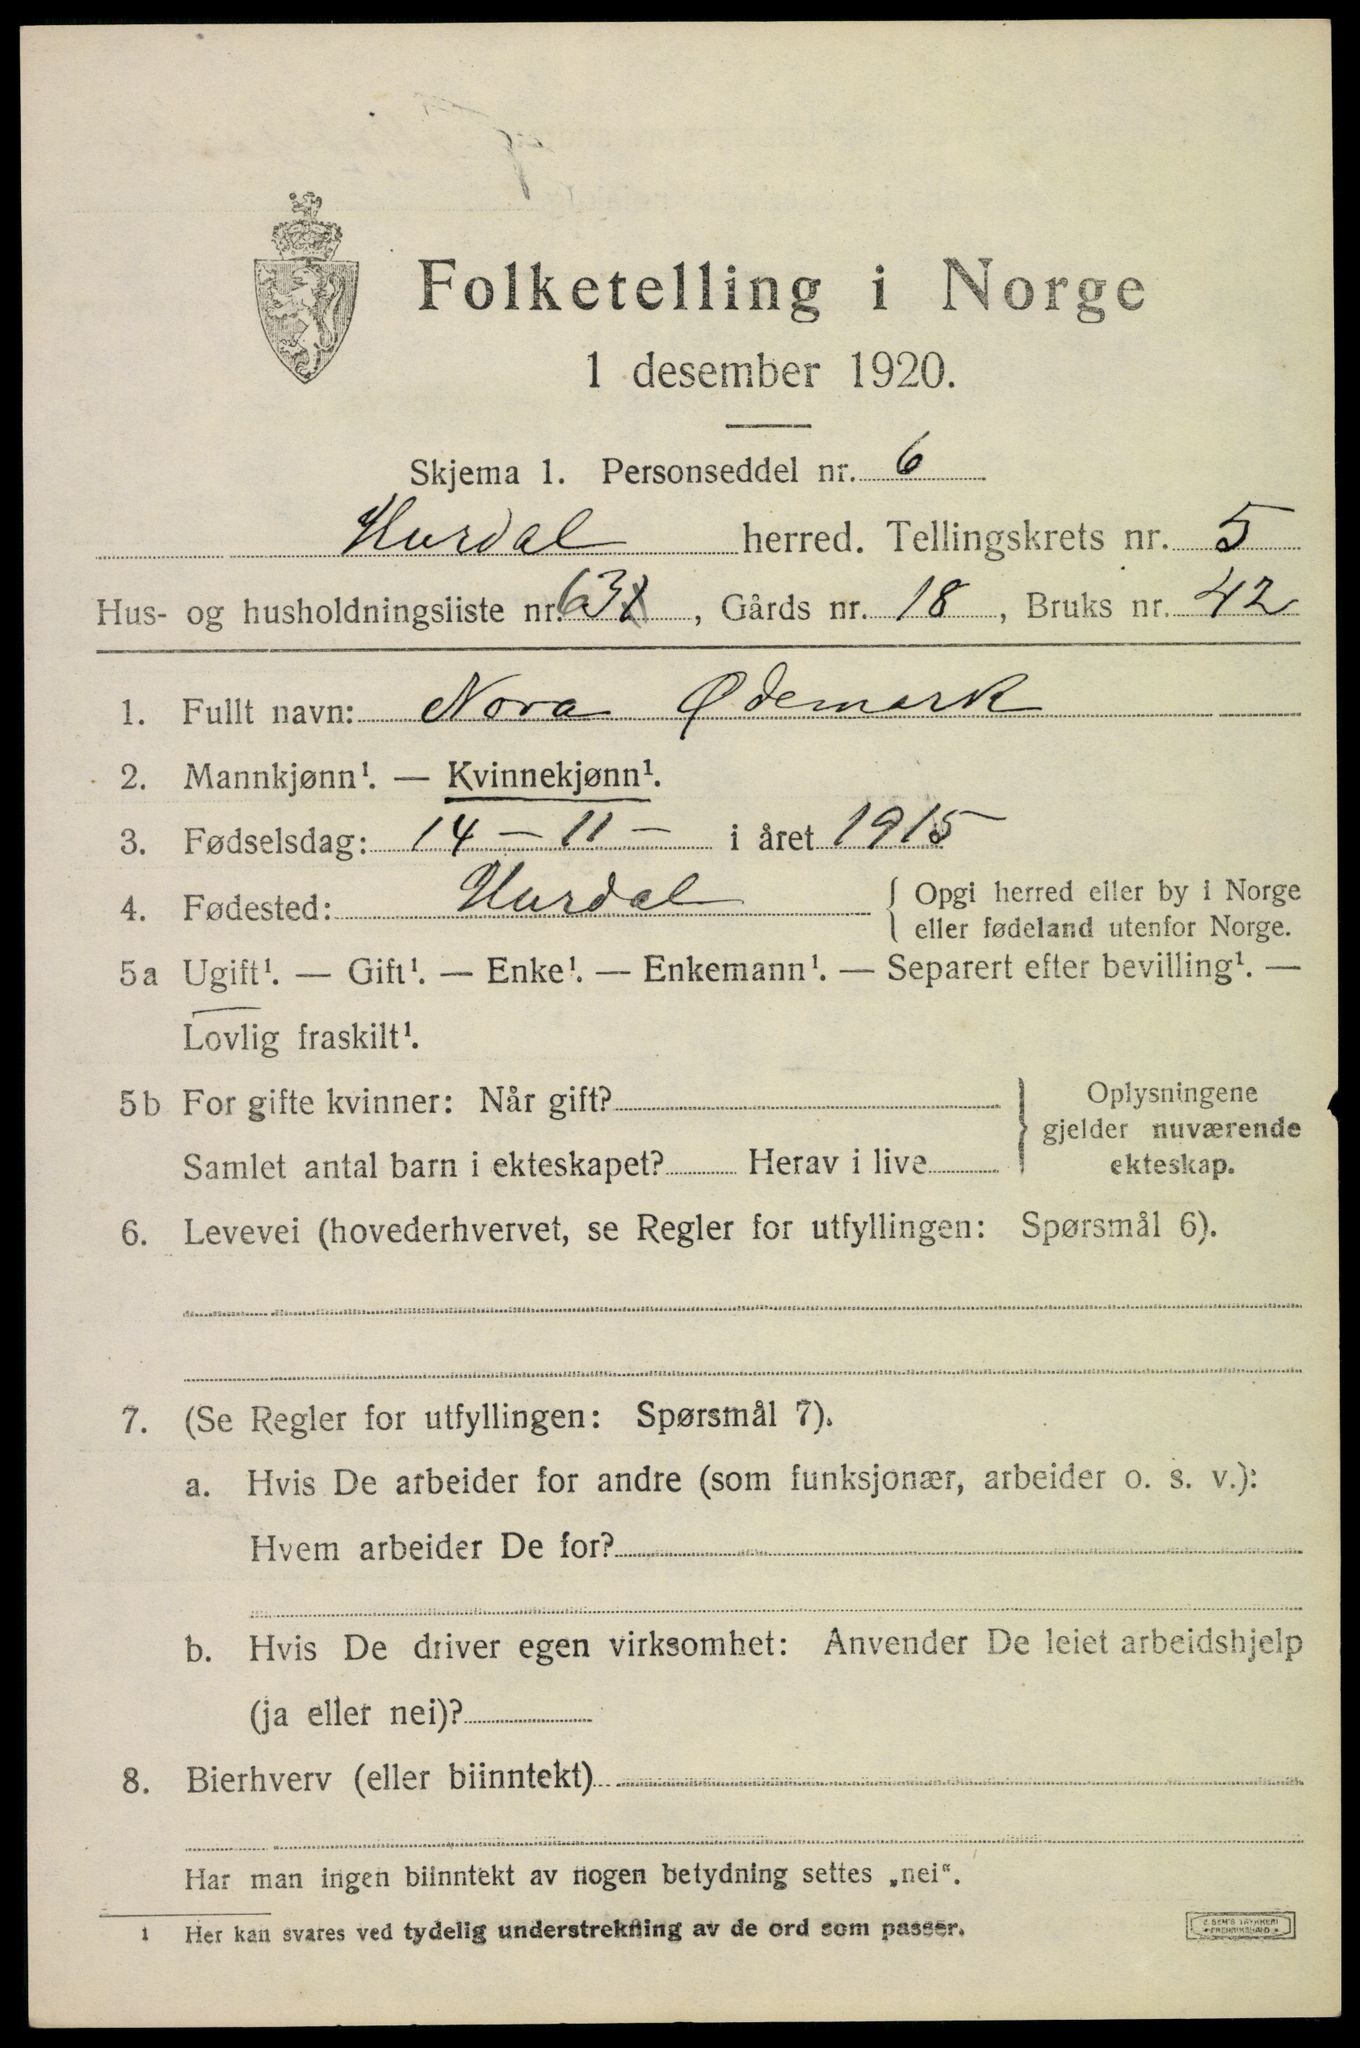 Folketelling i Norge
1 desember 1920.
Skjema 1. Personseddel nr. 6
Hurdal herred. Tellingskrets nr. 5
Hus- og husholdningsliste nr. 63 , Gårds nr. 18 , Bruks nr. 42
1. Fullt navn: Nora Ødemark
2. Mannkjønn¹. — Kvinnekjønn¹.
3. Fødselsdag: 14 — 11 — i året 1915
4. Fødested: Hurdal { Opgi herred eller by i Norge
eller fødeland utenfor Norge.
5a Ugift¹. — Gift¹. — Enke¹. — Enkemann¹. — Separert efter bevilling¹. —
Lovlig fraskilt¹.
5b For gifte kvinner: Når gift?
Samlet antal barn i ekteskapet? Herav i live
} Oplysningene
gjelder nuværende
ekteskap.
6. Levevei (hovederhvervet, se Regler for utfyllingen: Spørsmål 6).
7. (Se Regler for utfyllingen: Spørsmål 7).
a. Hvis De arbeider for andre (som funksjonær, arbeider o. s. v.):
Hvem arbeider De for?
b. Hvis De driver egen virksomhet: Anvender De leiet arbeidshjelp
(ja eller nei)?
8. Bierhverv (eller biinntekt)
Har man ingen biinntekt av nogen betydning settes „nei".
1 Her kan svares ved tydelig understrekning av de ord som passer.